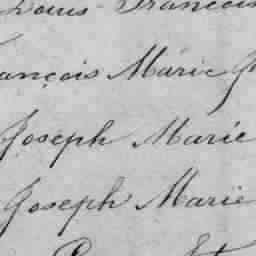 Louis François
ançois Marie
Joseph Marie
Joseph Marie